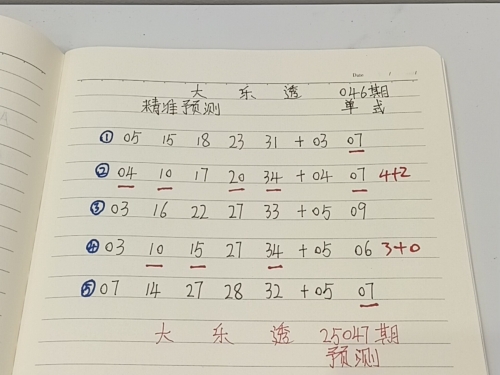 Date
大 乐 透 046期
精准预测 单 式
① 05 15 18 23 31 + 03 07
② 04 10 17 20 34 + 04 07 4+2
③ 03 16 22 27 33 + 05 09
④ 03 10 15 27 34 + 05 06 3+0
⑤ 07 14 27 28 32 + 05 07
大 乐 透 25047期
预测